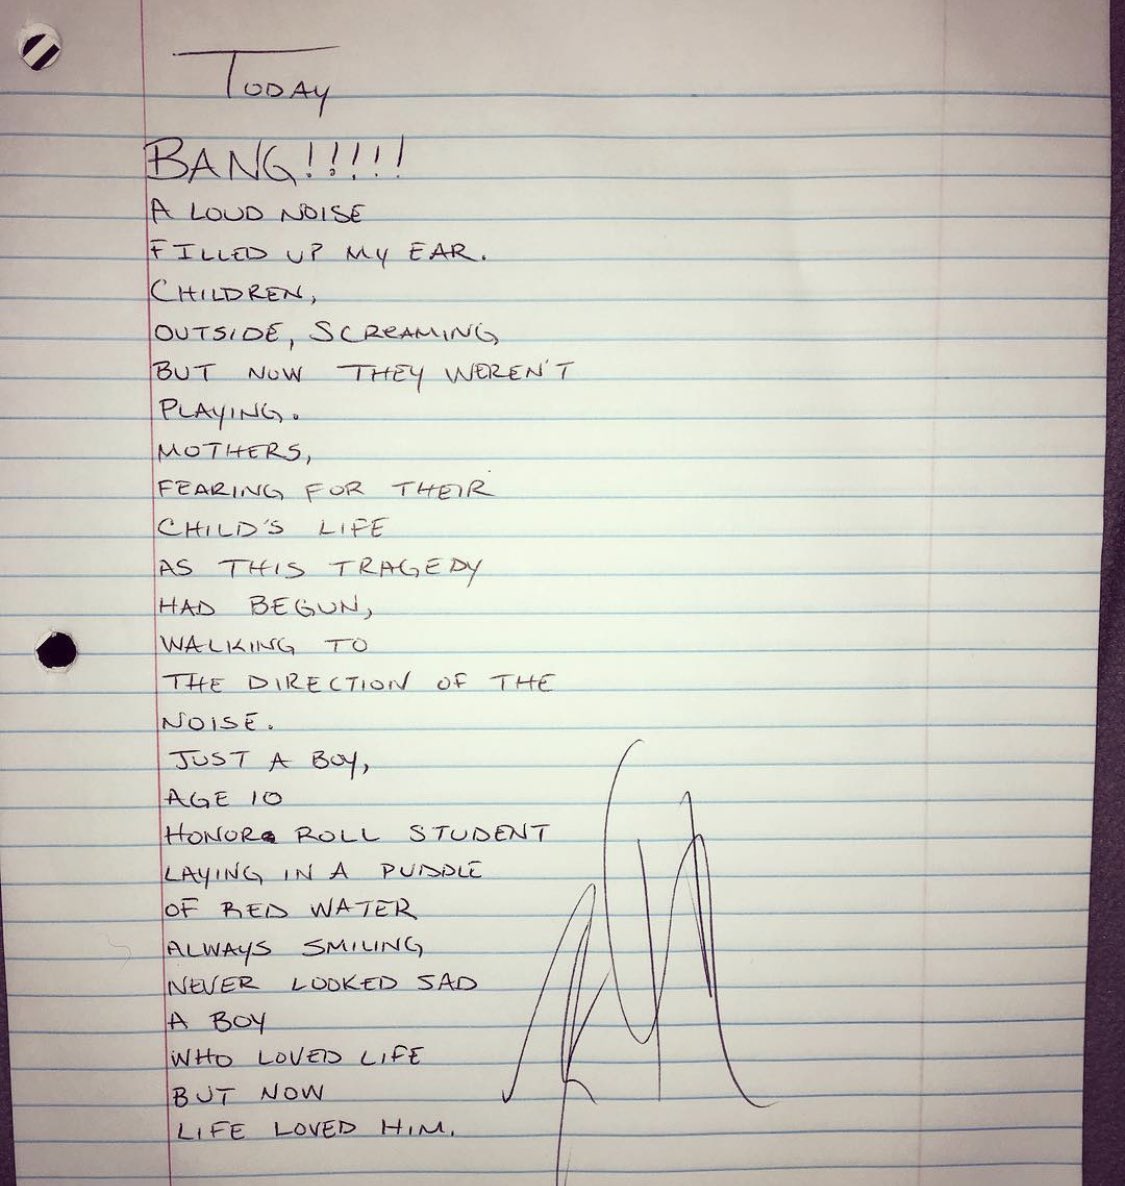 TODAY
BANG!!!!!
A LOUD NOISE
FILLED UP MY EAR.
CHILDREN,
OUTSIDE, SCREAMING
BUT NOW THEY WEREN'T
PLAYING.
MOTHERS,
FEARING FOR THEIR
CHILD'S LIFE
AS THIS TRAGEDY
HAD BEGUN,
WALKING TO
THE DIRECTION OF THE
NOISE.
JUST A BOY,
AGE 10
HONOR ROLL STUDENT
LAYING IN A PUDDLE
OF RED WATER
ALWAYS SMILING
NEVER LOOKED SAD
A BOY
WHO LOVED LIFE
BUT NOW
LIFE LOVED HIM.